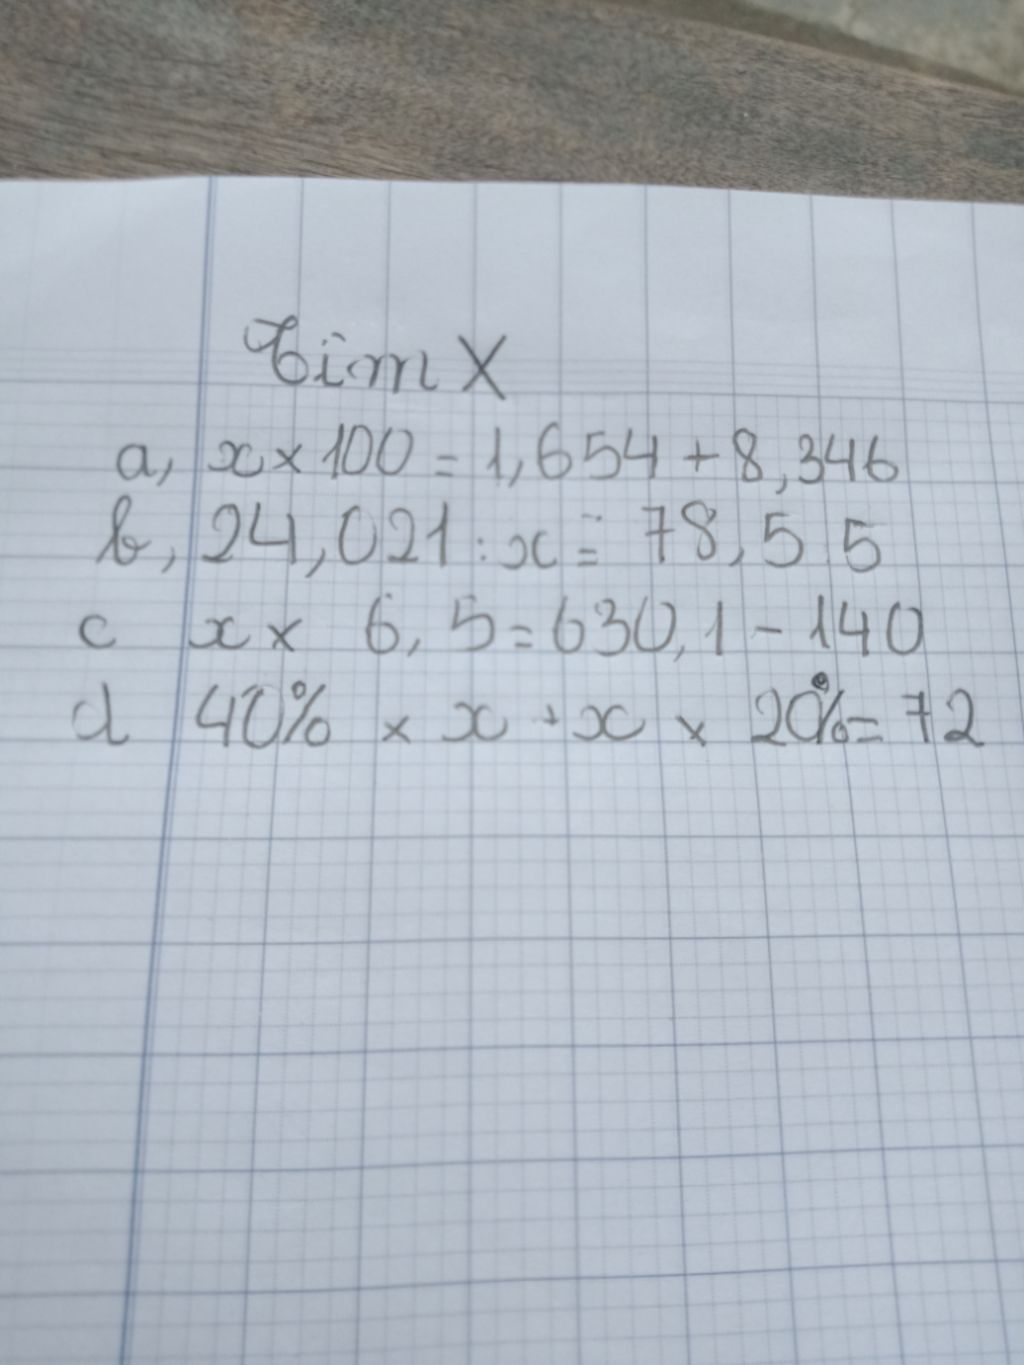 Tìm X
a, x × 100 = 1,654 + 8,346
b, 24,021 : x = 78,55
c x × 6,5 = 630,1 - 140
d 40% × x + x × 20% = 72